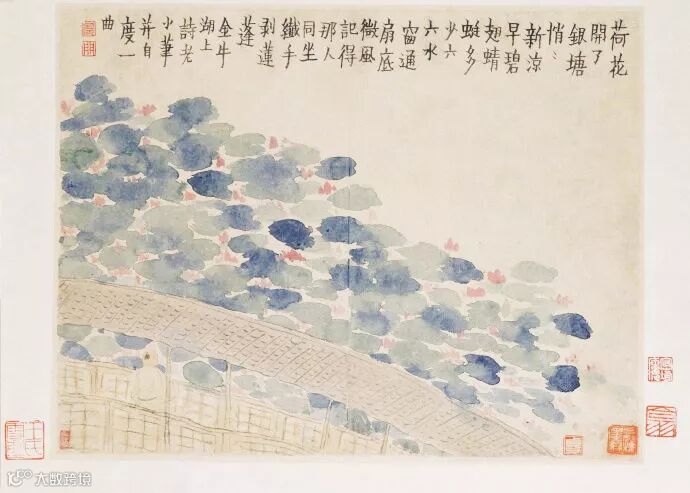 荷花
開了
銀塘
悄〻
新涼
早碧
翅蜻
蜓多
少六
六水
窗通
扇底
微風
記得
那人
同坐
纖手
剥蓮
蓬
金牛
湖上
詩老
小筆
并自
度一
曲
大数跨境